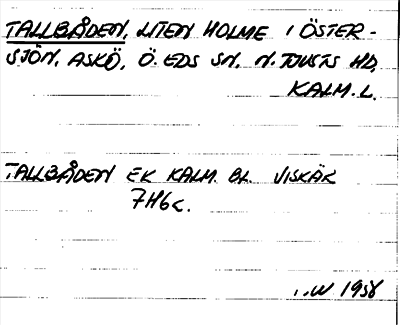 TALLBÅDEN, LITEN HOLME I ÖSTER-
SJÖN, ASKÖ, Ö. EDS SN, N. TJUSTS HD,
KALM. L.
TALLBÅDEN EK KALM. BL. VISKÄR
7H6c.
W 1938